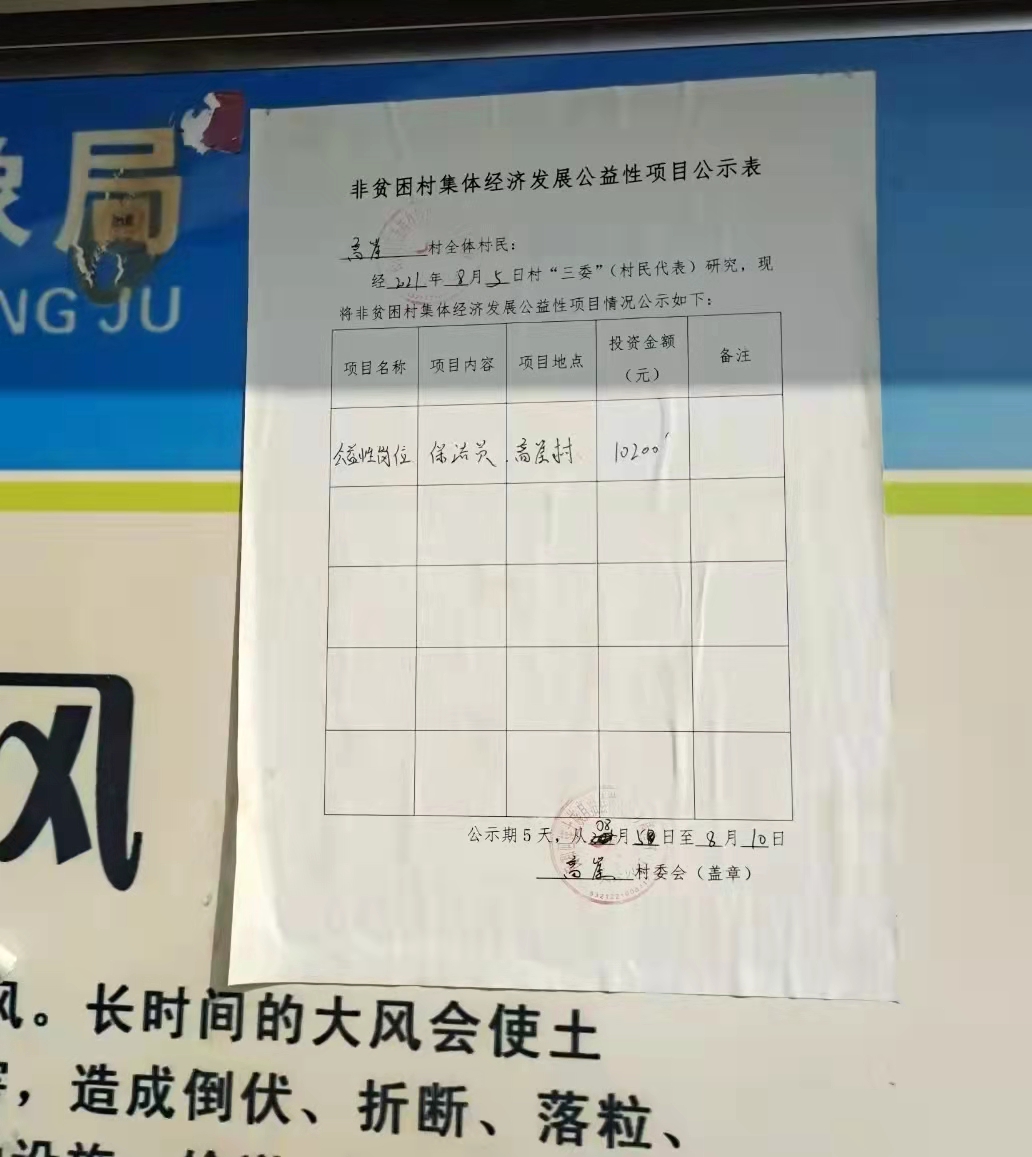 局
NG JU
非贫困村集体经济发展公益性项目公示表
高崖村全体村民：
经2021年8月5日村“三委”（村民代表）研究，现
将非贫困村集体经济发展公益性项目情况公示如下：
项目名称 项目内容 项目地点 投资金额（元） 备注
公益性岗位 保洁员 高崖村 10200
公示期5天，从08月5日至8月10日
高崖村委会（盖章）
风
风。长时间的大风会使土
，造成倒伏、折断、落粒、